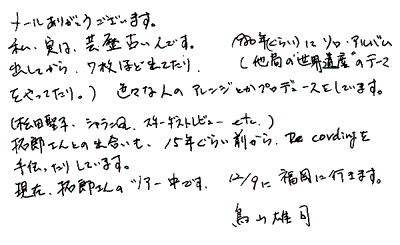 メールありがとうございます。
私、実は、芸歴古いんです。 1980年ぐらいにソロ・アルバム
出してから、7枚ほど出てたり、 (他局の"世界遺産"のテーマ
をやってたり。) 色々な人のアレンジとかプロデュースをしています。
(松田聖子、シャランQ、スターダストレビュー etc.)
拓郎さんとの出会いも、15年ぐらい前から、Recordingを
手伝ったりしています。
現在、拓郎さんの"ツアー中です。 12/9に福岡に行きます。
鳥山雄司